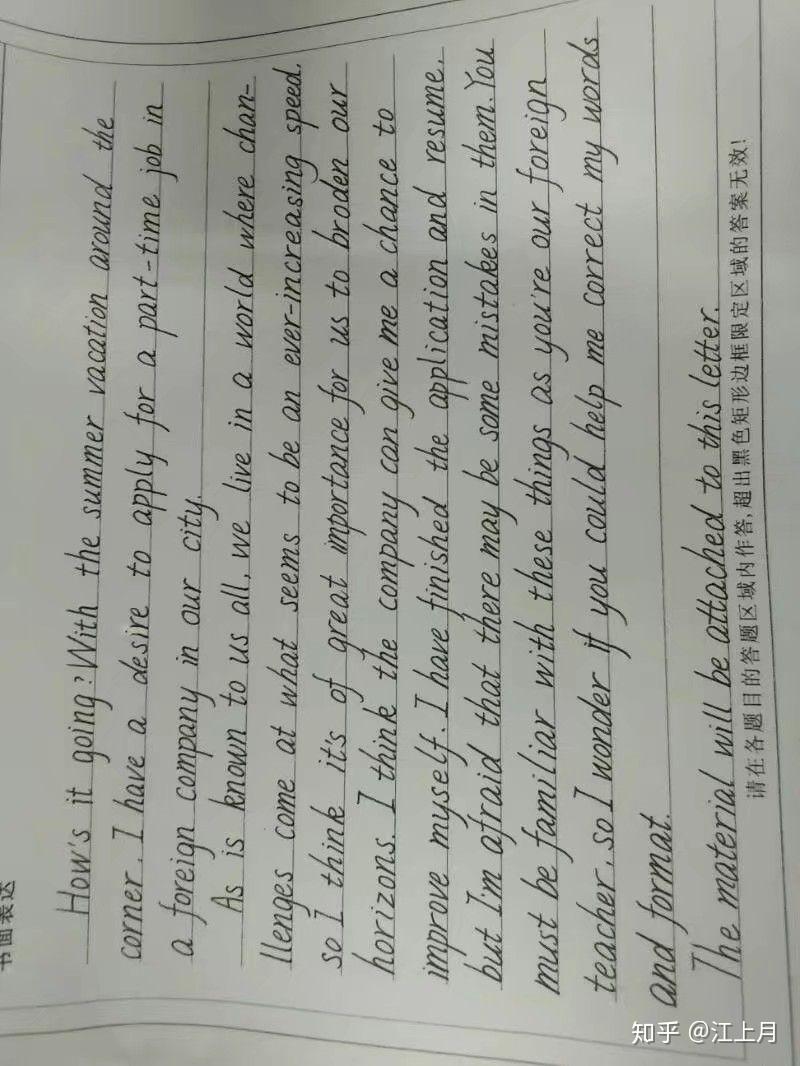 书面表达
How's it going? With the summer vacation around the
corner, I have a desire to apply for a part-time job in
a foreign company in our city.
As is known to us all, we live in a world where chan-
llenges come at what seems to be an ever-increasing speed,
so I think it's of great importance for us to broden our
horizons. I think the company can give me a chance to
improve myself. I have finished the application and resume,
but I'm afraid that there may be some mistakes in them. You
must be familiar with these things as you're our foreign
teacher, so I wonder if you could help me correct my words
and format.
The material will be attached to this letter.
请在各题目的答题区域内作答,超出黑色矩形边框限定区域的答案无效!
知乎 @江上月